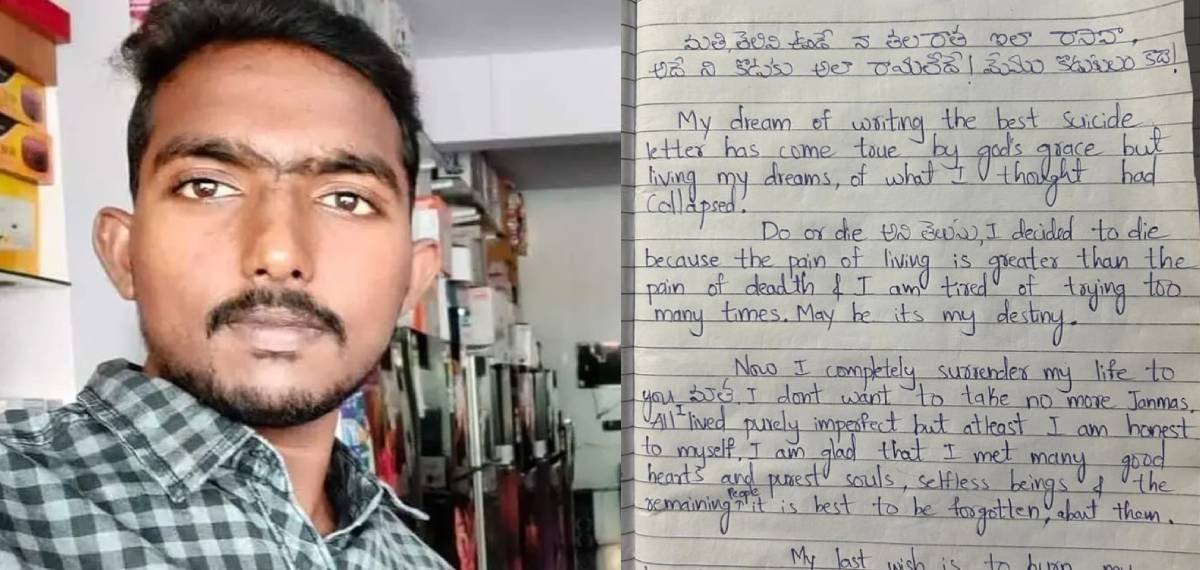 తెలివి ఉండే నా తల రాత ఇలా
అదే ని కొడుకు అలా రాయలేదే! మేము
My dream of writing the best suicide
letter has come true by god's grace but
living my dreams, of what I thought had
Collapsed.
Do or die అని I decided to die
because the pain of living is greater than the
pain of deadth & I am tired of trying too
many times. May be its my destiny.
Now I completely surrender my life to
you I dont want to take no more Janmas.
All I lived purely imperfect but atleast I am honest
to myself, I am glad that I met many good
hearts and purest souls, selfless beings & the
remaining people it is best to be forgotten, about them.
My last wish is to burn my